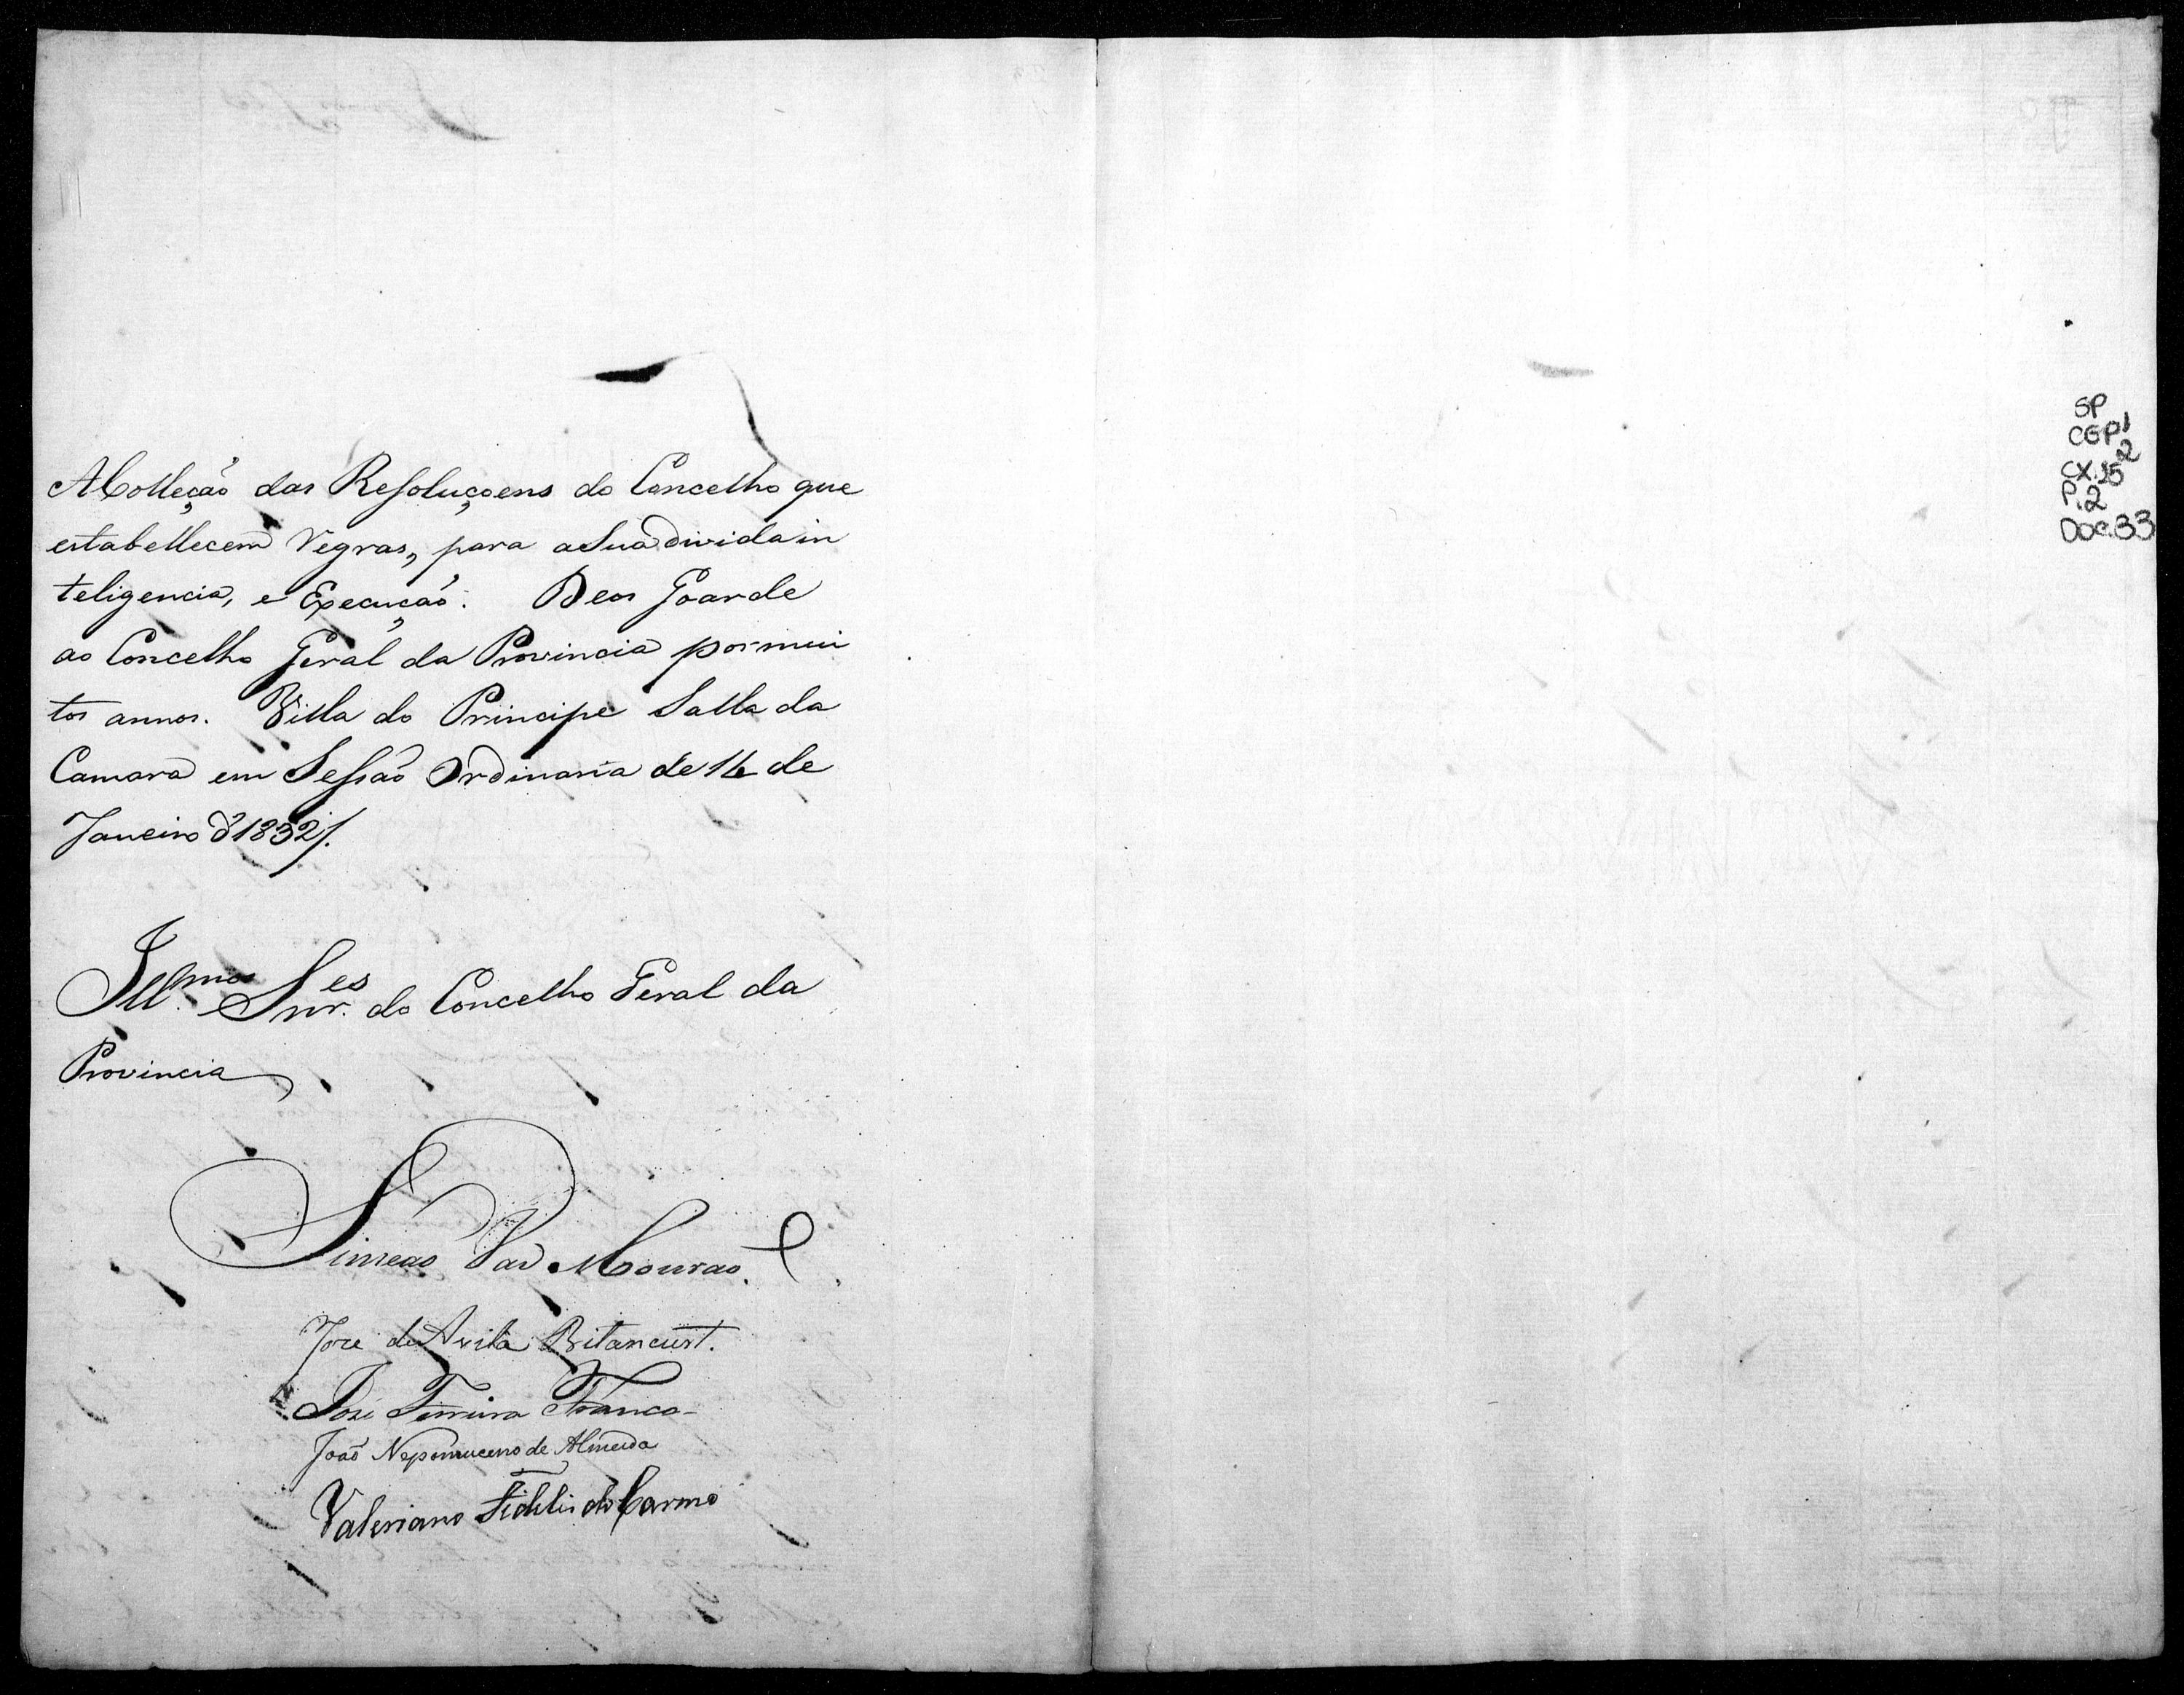 A Colleção das Resoluçoens do Concelho que
estabellecem regras, para a sua divida in
teligencia, e Execução. Deos Goarde
ao Concelho Geral da Provincia por mui
tos annos. Villa do Principe Salla da
Camara em Sessão Ordinaria de 16 de
Janeiro d'1832/.
Ill.mos Snr.es do Concelho Geral da
Provincia
Simeao Vas Mourao.
Joze de Avila Bitancurt.
Joze Ferreira Franco
João Nepomuceno de Almeida
Valeriano Fidelis do Carmo
SP
CGP1
CX.25 2
P.2
Doc.33